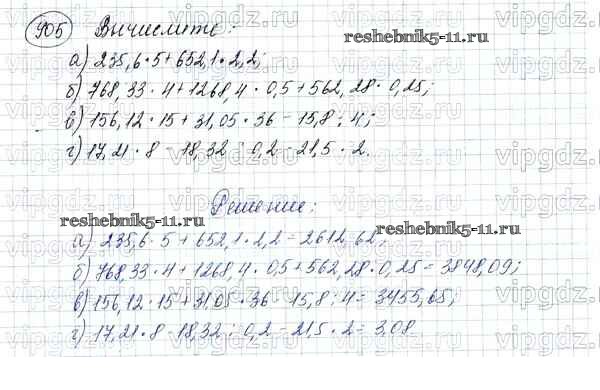 905 Вычислите:
reshebnik5-11.ru
а) 235,6 · 5 + 652,1 · 2,2;
б) 768,33 · 4 + 1268,4 · 0,5 + 562,28 · 0,25;
в) 156,12 · 15 + 31,05 · 36 - 15,8 : 4;
г) 17,21 · 8 - 18,32 : 0,2 - 21,5 · 2.
Решение:
reshebnik5-11.ru reshebnik5-11.ru
а) 235,6 · 5 + 652,1 · 2,2 = 2612,62;
б) 768,33 · 4 + 1268,4 · 0,5 + 562,28 · 0,25 = 3848,09;
в) 156,12 · 15 + 31,05 · 36 - 15,8 : 4 = 3455,65;
г) 17,21 · 8 - 18,32 : 0,2 - 21,5 · 2 = 3,08